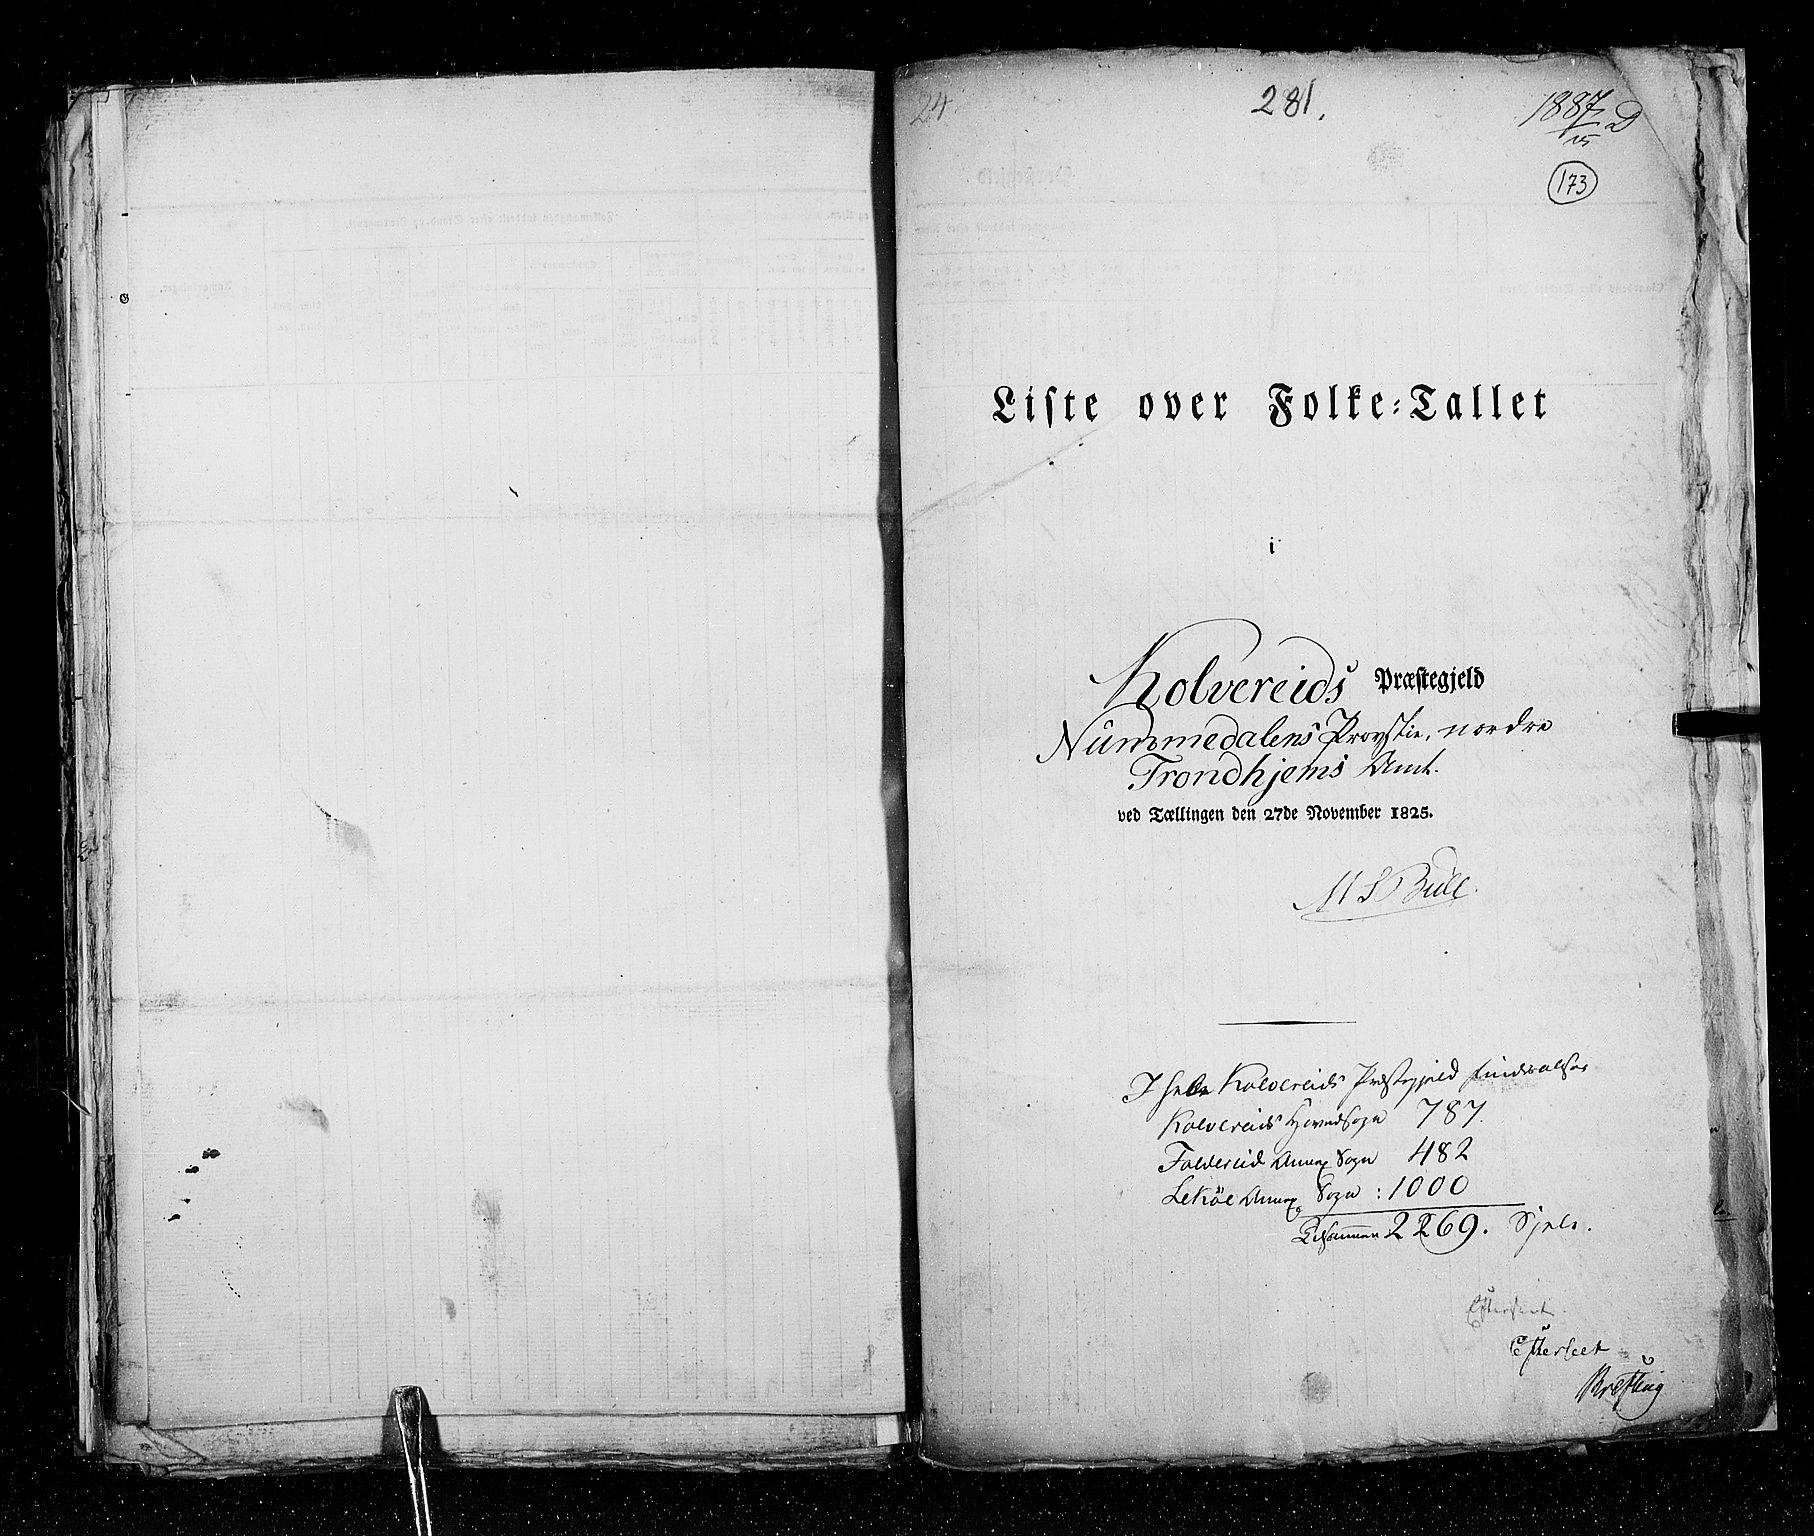 24
281.
1887/25 D
173
Liste over Folke-Tallet
i
Kolvereids Præstegjeld
Nummedalens Provstie, nordre
Trondhjems Amt.
ved Tællingen den 27de November 1825.
M S Bull.
I hele Kolvereids Præstegjeld
Kolvereids Hovedsogn 787.
Foldereid Annex Sogn 482
Leköe Annex Sogn : 1000
Tilsammen 2269. Sjele.
Efterseet
Efterseet